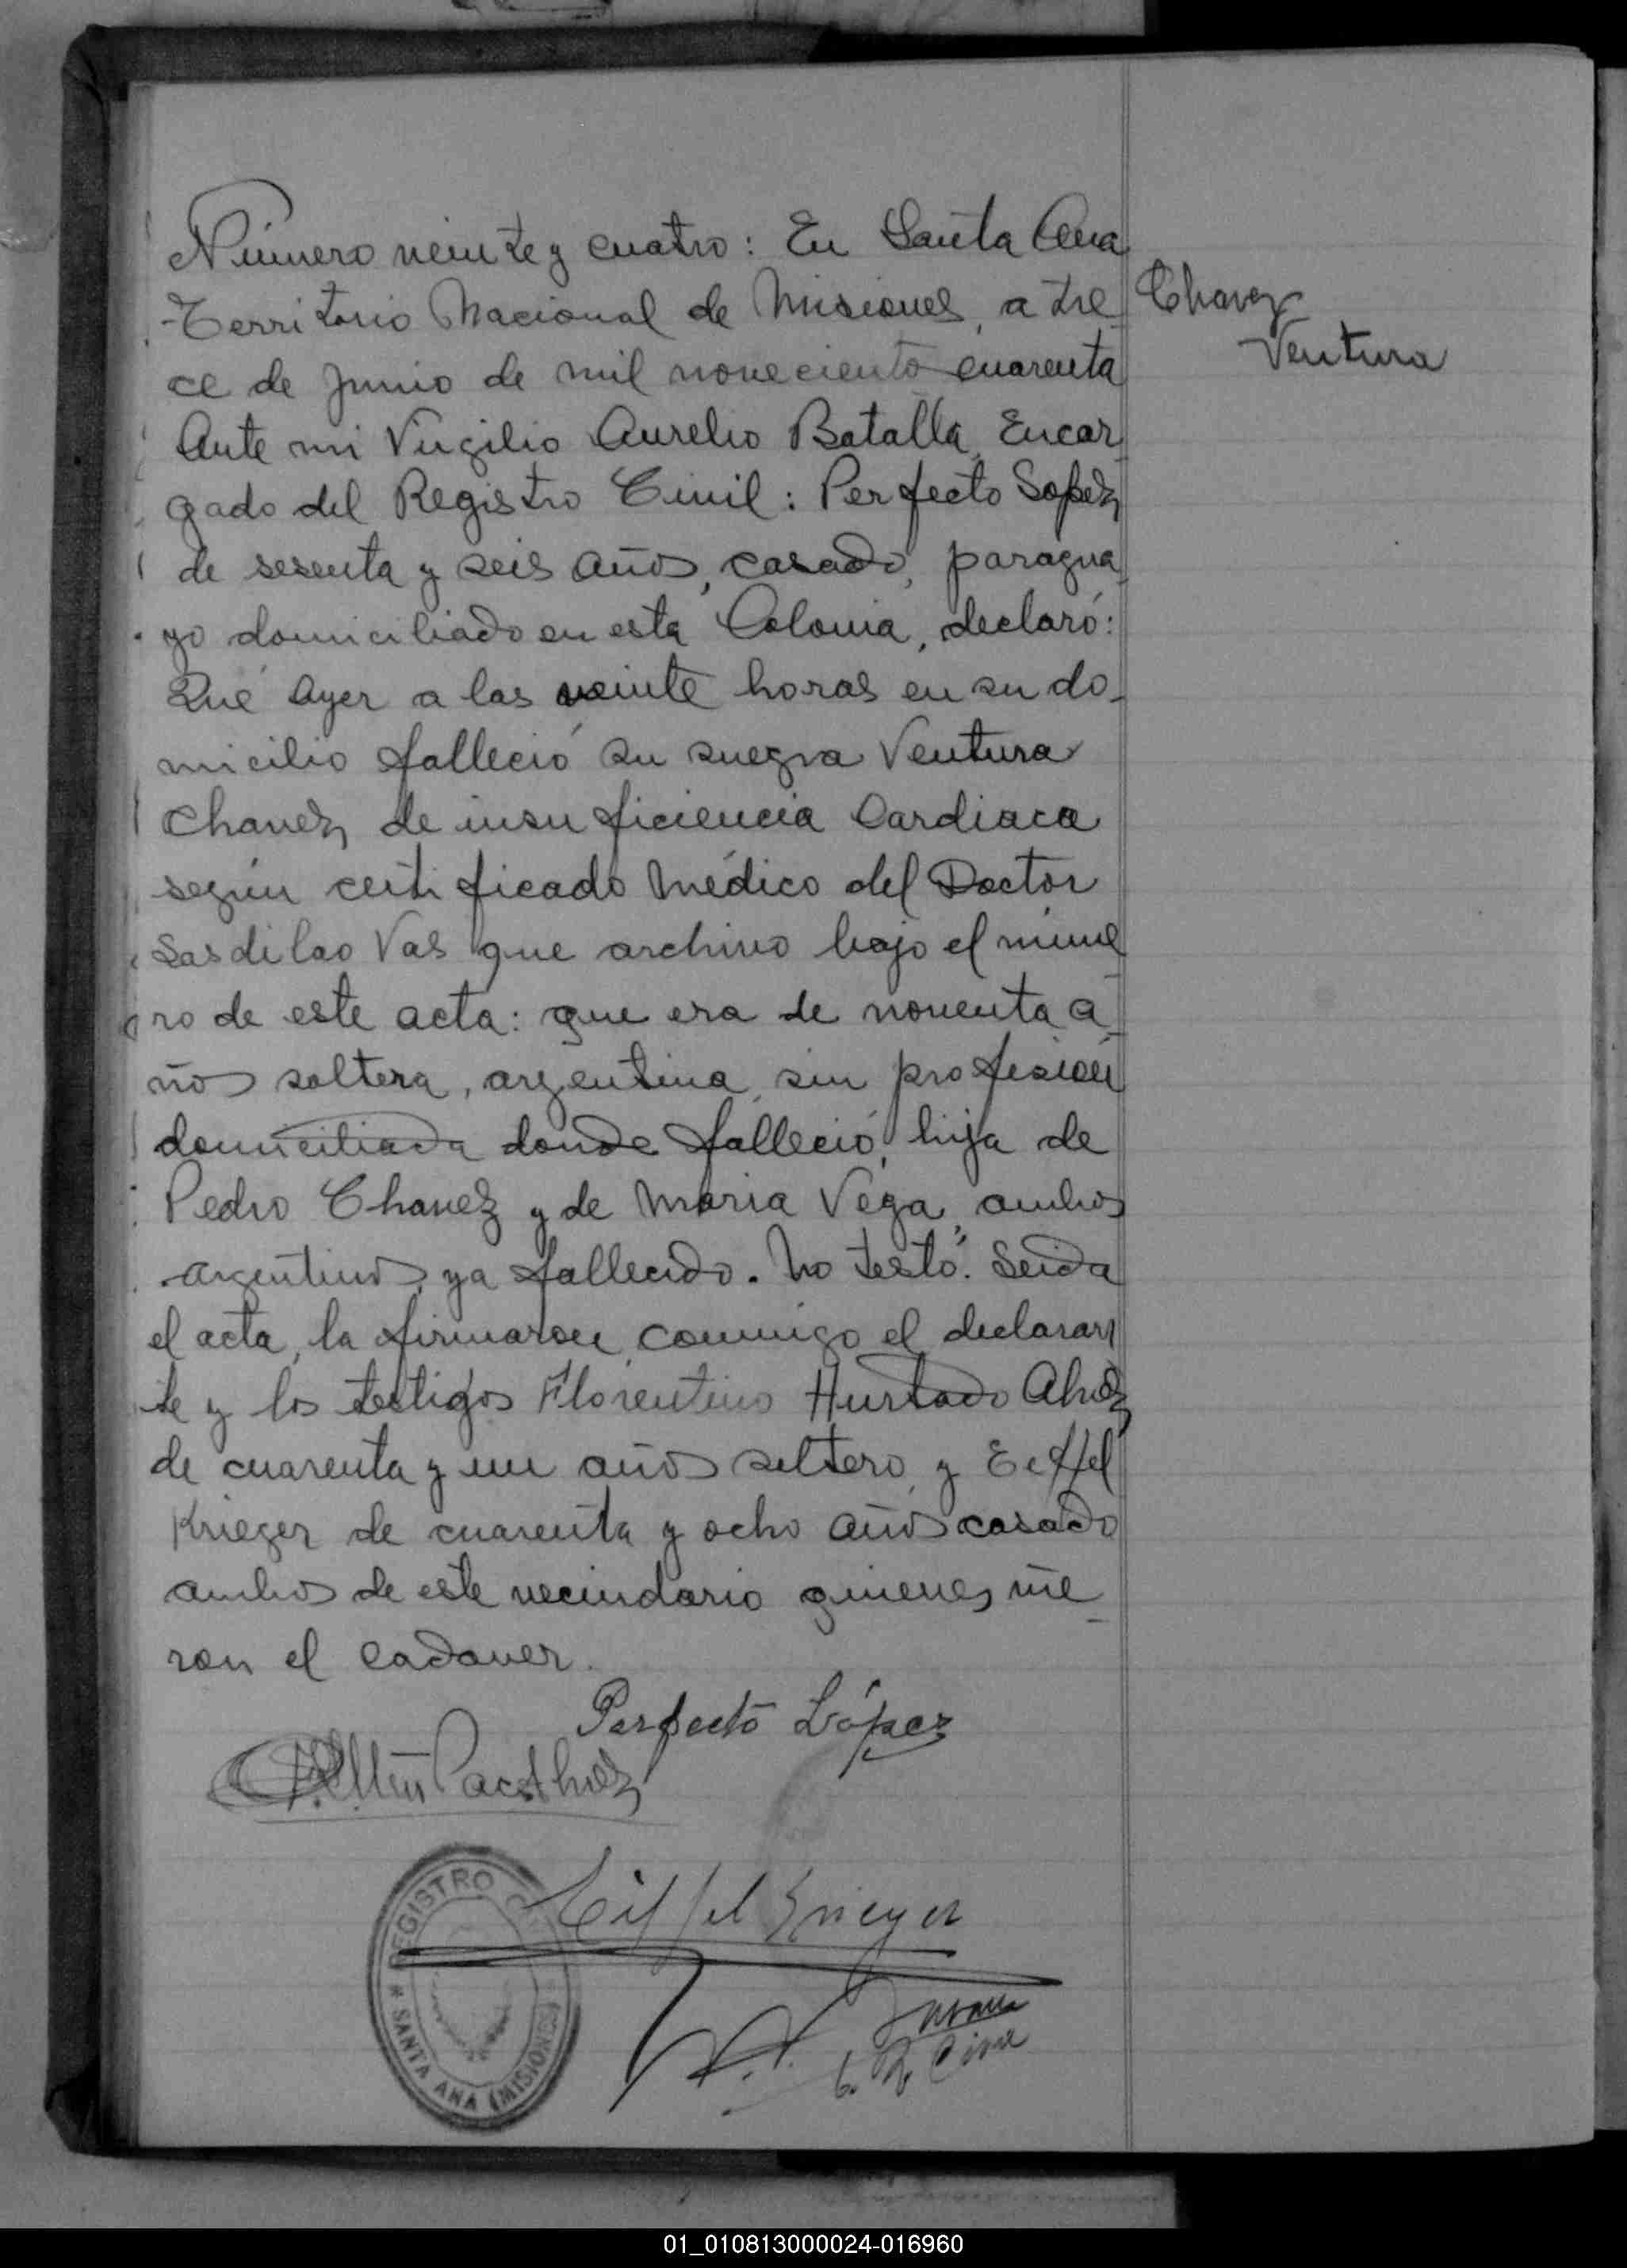 Número veinte y cuatro: En Santa Ana
Territorio Nacional de Misiones, a tre
ce de Junio de mil noveciento cuarenta
Ante mi Virgilio Aurelio Batalla, Encar
gado del Registro Civil: Perfecto Lopez
de sesenta y seis años, casado, paragua
yo domiciliado en esta Colonia, declaró:
Que ayer a las veinte horas en su do-
micilio falleció su suegra Ventura
Chavez, de insuficiencia Cardiaca
según certificado Médico del Doctor
Lasdilao Vas que archivo bajo el núme
ro de este acta: que era de noventa a
ños soltera, argentina, sin profesión
domiciliada donde falleció, hija de
Pedro Chavez y de Maria Vega, ambos
argentinos, ya fallecido. No testó. Leida
el acta, la firmaron conmigo el declaran
te y los testigos Florentino Hurtado
de cuarenta y un años soltero, y Eiffel
Krieger de cuarenta y ocho años casado
ambos de este vecindario quienes vie-
ron el cadaver.
Chavez
Ventura
Perfecto López
Eiffel Krieger
REGISTRO
SANTA ANA (MISIONES)
01_010813000024-016960